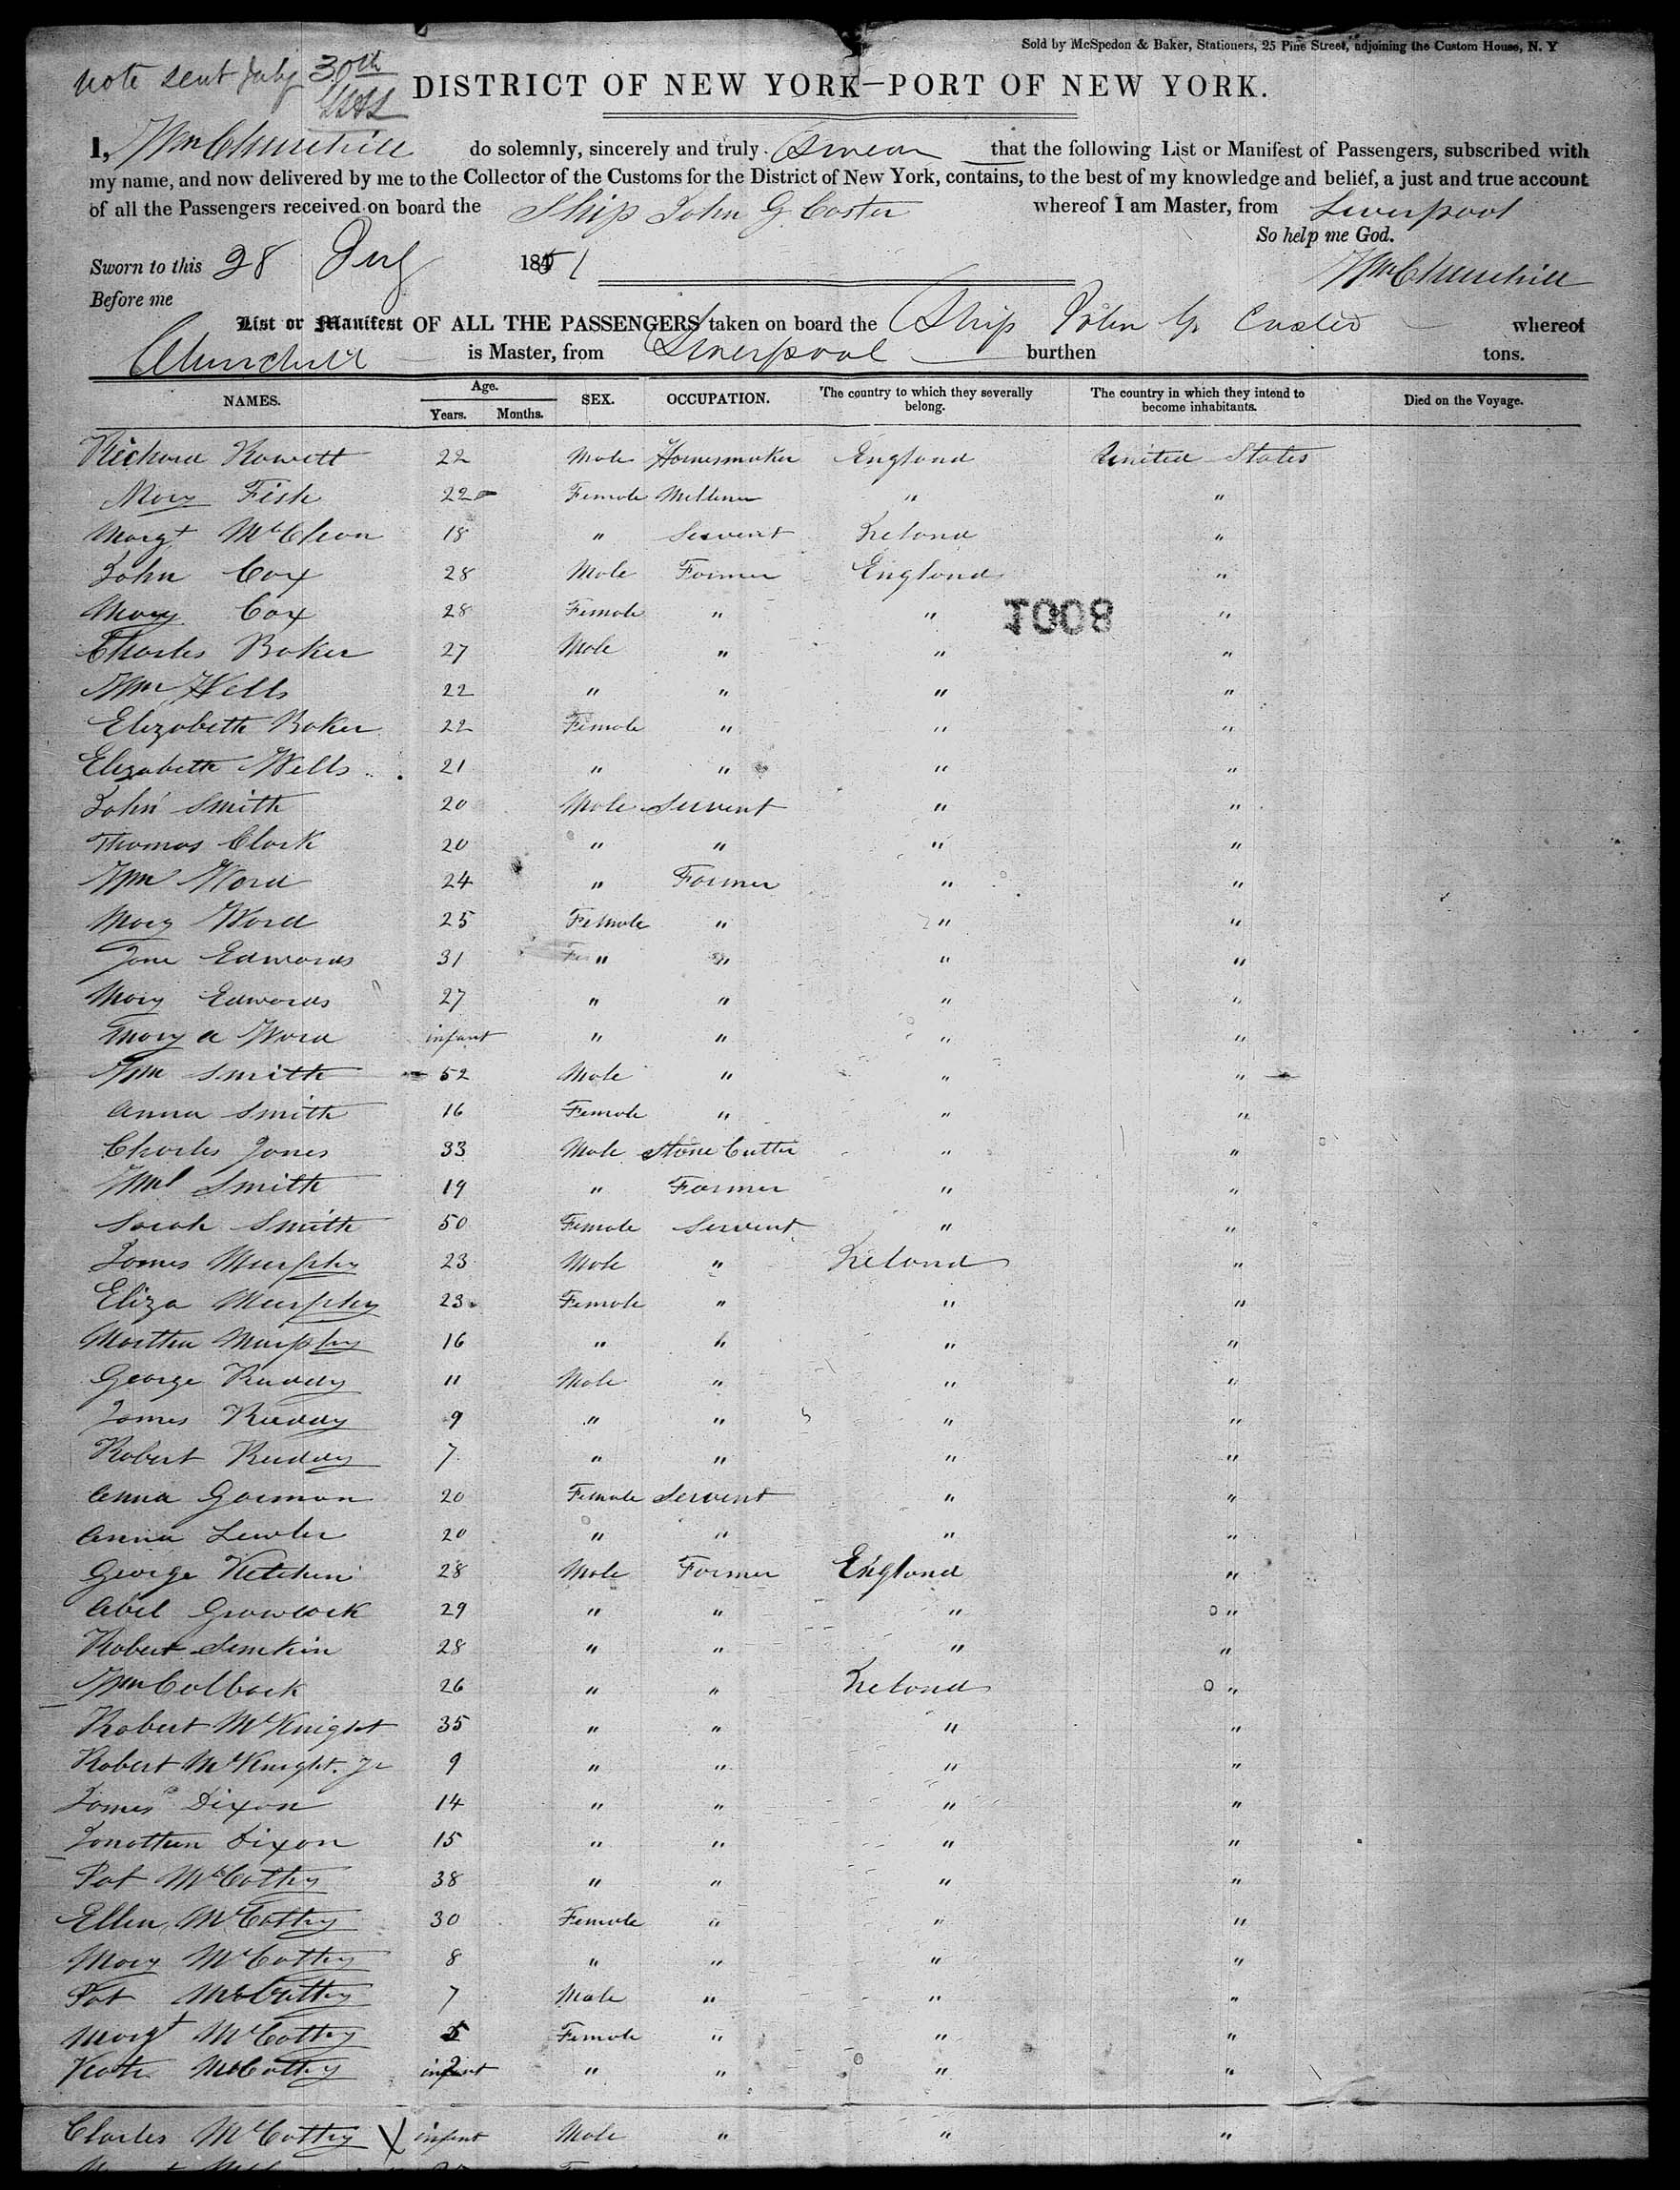 Sold by McSpedon & Baker, Stationers, 25 Pine Street, adjoining the Custom House, N. Y
note sent July 30th
DISTRICT OF NEW YORK—PORT OF NEW YORK.
I, Wm Churchill do solemnly, sincerely and truly Swear that the following List or Manifest of Passengers, subscribed with
my name, and now delivered by me to the Collector of the Customs for the District of New York, contains, to the best of my knowledge and belief, a just and true account
of all the Passengers received on board the Ship John G. Coster whereof I am Master, from Liverpool
So help me God.
Sworn to this 28 July 1851 Wm Churchill
Before me
List or Manifest OF ALL THE PASSENGERS taken on board the Ship John G. Coster whereof
Churchill is Master, from Liverpool burthen tons.
NAMES. Age. Years. Months. SEX. OCCUPATION. The country to which they severally belong. The country in which they intend to become inhabitants. Died on the Voyage.
Richard Rowett 22 Male Harnesmaker England United States
Mary Fish 22 Female Milliner " "
Margt McClean 18 " Servent Ireland "
John Cox 28 Male Farmer England "
Mary Cox 28 Female " " "
1008
Charles Baker 27 Male " " "
Wm Wells 22 " " " "
Elizabeth Baker 22 Female " " "
Elizabeth Wells 21 " " " "
John Smith 20 Male Servent " "
Thomas Clark 20 " " " "
Wm Ward 24 " Farmer " "
Mary Ward 25 Female " " "
Jane Edwards 31 " " " "
Mary Edwards 27 " " " "
Mary a Ward infant " " " "
Wm Smith 52 Male " " "
Anna Smith 16 Female " " "
Charles Jones 33 Male Stone Cutter " "
Wm Smith 19 " Farmer " "
Sarah Smith 50 Female Servent " "
James Murphy 23 Male " Ireland "
Eliza Murphy 23 Female " " "
Martha Murphy 16 " " " "
George Ruddy 11 Male " " "
James Ruddy 9 " " " "
Robert Ruddy 7 " " " "
Anna Gorman 20 Female Servent " "
Anna Lewler 20 " " " "
George Ketchen 28 Male Farmer England "
Abel Growcock 29 " " " "
Robert Simkin 28 " " " "
Wm Colback 26 " " Ireland "
Robert McKnight 35 " " " "
Robert McKnight. Jr 9 " " " "
James Dixon 14 " " " "
Jonathan Dixon 15 " " " "
Pat McCathy 38 " " " "
Ellen McCathy 30 Female " " "
Mary McCathy 8 " " " "
Pat McCathy 7 Male " " "
Margt McCathy 5 Female " " "
Kate McCathy 2 " " " "
Charles McCathy infant Male " " "